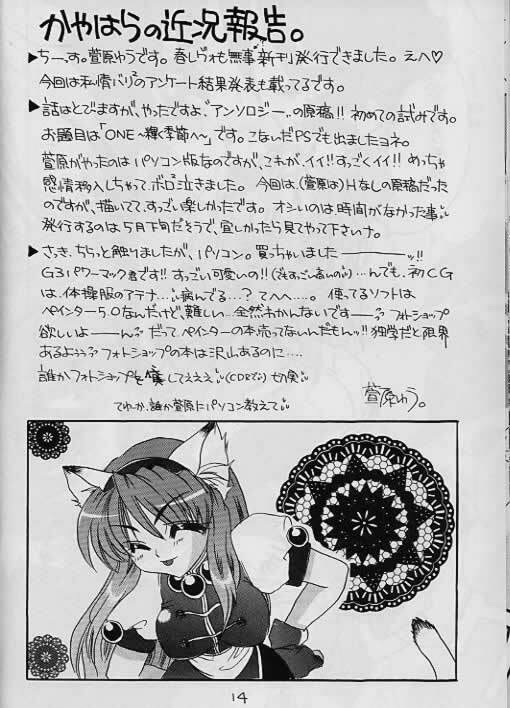 かやはらの近況報告。
▶ちーっす。萱原ゆうです。春しらオも無事新刊発行できました。えへ♡
今回は私情バリバリのアンケート結果発表も載ってるです。
▶話はとびますが、やったですよ、"アンソロジー"の原稿!! 初めての試みです。
お題目は「ONE ～輝く季節へ～」です。こないだPSでも出ましたヨネ。
萱原がやったのはパソコン版なのですが、これが、イイ!! すっごくイイ!! めっちゃ
感情移入しちゃって、ボロ泣きました。今回は、(萱原は)Hなしの原稿だった
のですが、描いてて、すっごい楽しかったです。オシいのは時間がなかった事
発行するのは5月下旬だそうで、宜しかったら見てやって下さいナ。
▶さっき、ちらっと触りましたが、パソコン。買っちゃいました―――ッ!!
G3パワーマック君です!! すっごい可愛いの!! (でもすっごい高いの) …んでも、初CG
は、体操服のアテナ…病んでる…? てへへ…。使ってるソフトは
ペインター5.0なんだけど、難しい…全然わかんないです―――フォトショップ
欲しいよ―――んっ だって、ペインターの本、売ってないんだもんッ!! 独学だと限界
あるようっっフォトショップの本は沢山あるのに….
誰かフォトショップを僕してえええ(CDRで) 切実
てゆーか、誰か萱原にパソコン教えて
萱原ゆう。
14